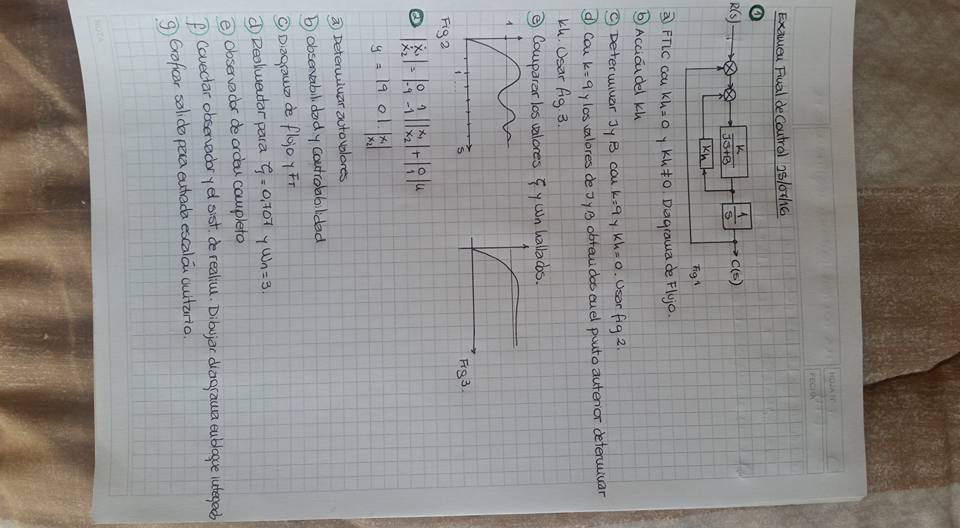 Examen Final de Control 15/07/16
①
R(s)
K
JS+B
1
S
C(s)
Kh
Fig 1
a) FTLC con Kh=0 y Kh≠0. Diagrama de Flujo.
b) Acción del Kh
c) Determinar J y B con K=9 y Kh=0. Usar fig 2.
d) Con K=9 y los valores de J y B obtenidos en el punto anterior determinar
Kh. Usar fig 3.
e) Comparar los valores ξ y Wn hallados.
1
1
s
Fig 2
Fig 3.
② |ẋ1| = |0 1| |x1| + |0| u
|ẋ2| |-9 -1| |x2| |1|
y = |9 0| |x1|
|x2|
a) Determinar autovalores
b) Observabilidad y controlabilidad
c) Diagrama de flujo y FT
d) Realimentar para ξ=0,707 y Wn=3.
e) Observador de orden completo
f) Conectar observador y el sist. de realim. Dibujar diagrama en bloque integrado
g) Graficar salida para entrada escalón unitario.
NOTA
FECHA